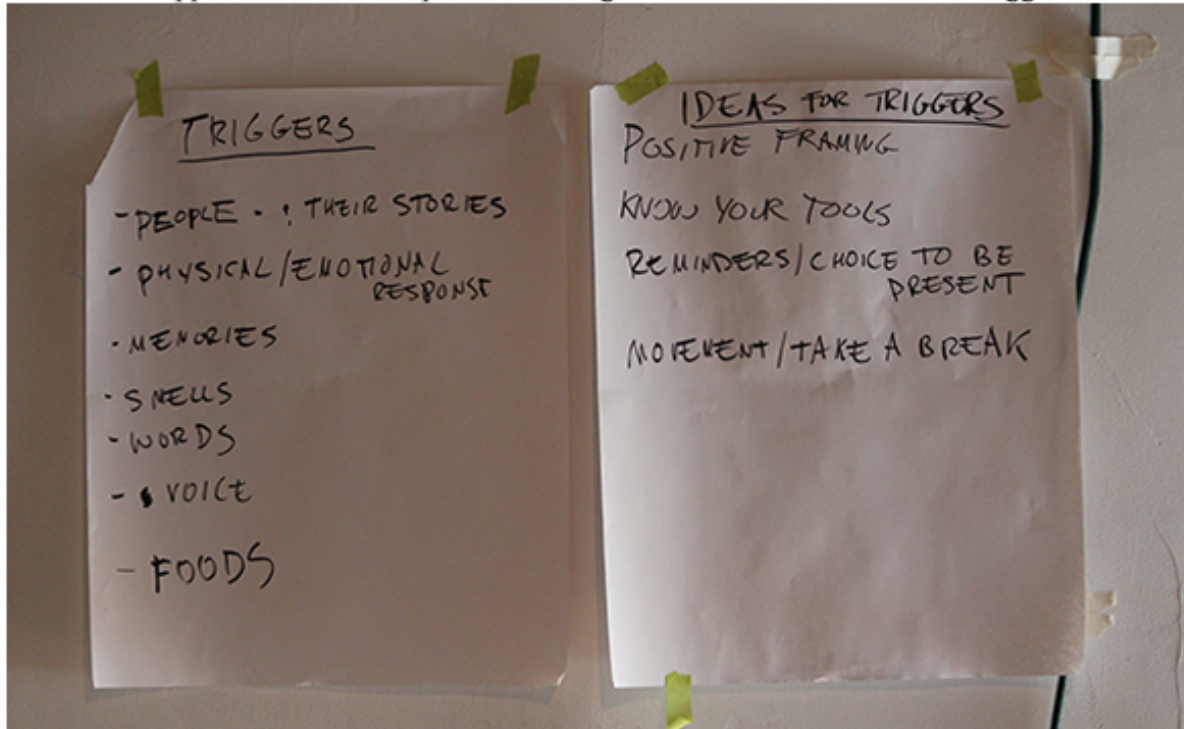 TRIGGERS
- PEOPLE . : THEIR STORIES
- PHYSICAL/EMOTIONAL
RESPONSE
- MEMORIES
- SMELLS
- WORDS
- VOICE
- FOODS
IDEAS FOR TRIGGERS
POSITIVE FRAMING
KNOW YOUR TOOLS
REMINDERS/CHOICE TO BE
PRESENT
MOVEMENT/TAKE A BREAK